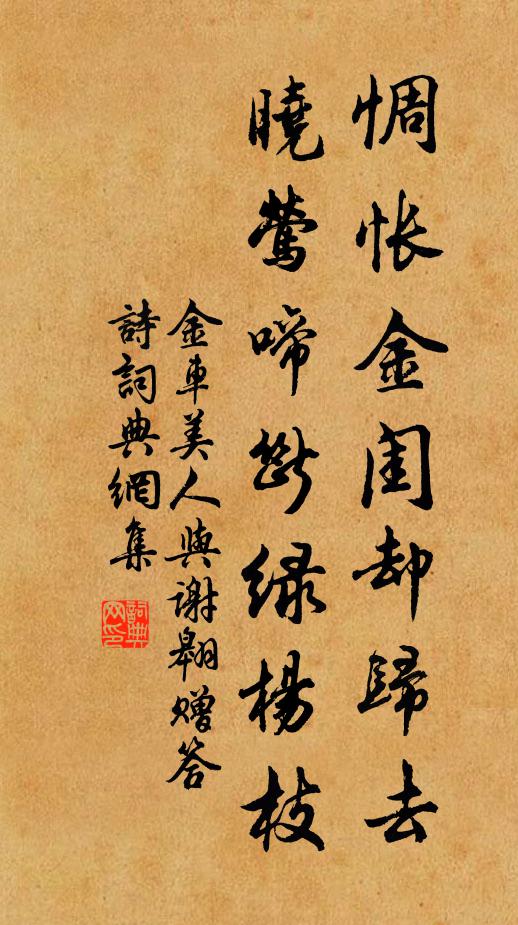 惆悵金閨却歸去
曉鶯啼斷绿楊枝
金車美人與謝翱贈答
詩詞典網集
詞典網印